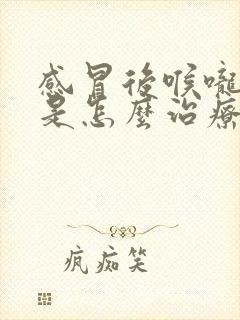 感冒後喉嚨
是怎麼治療
疯痴笑